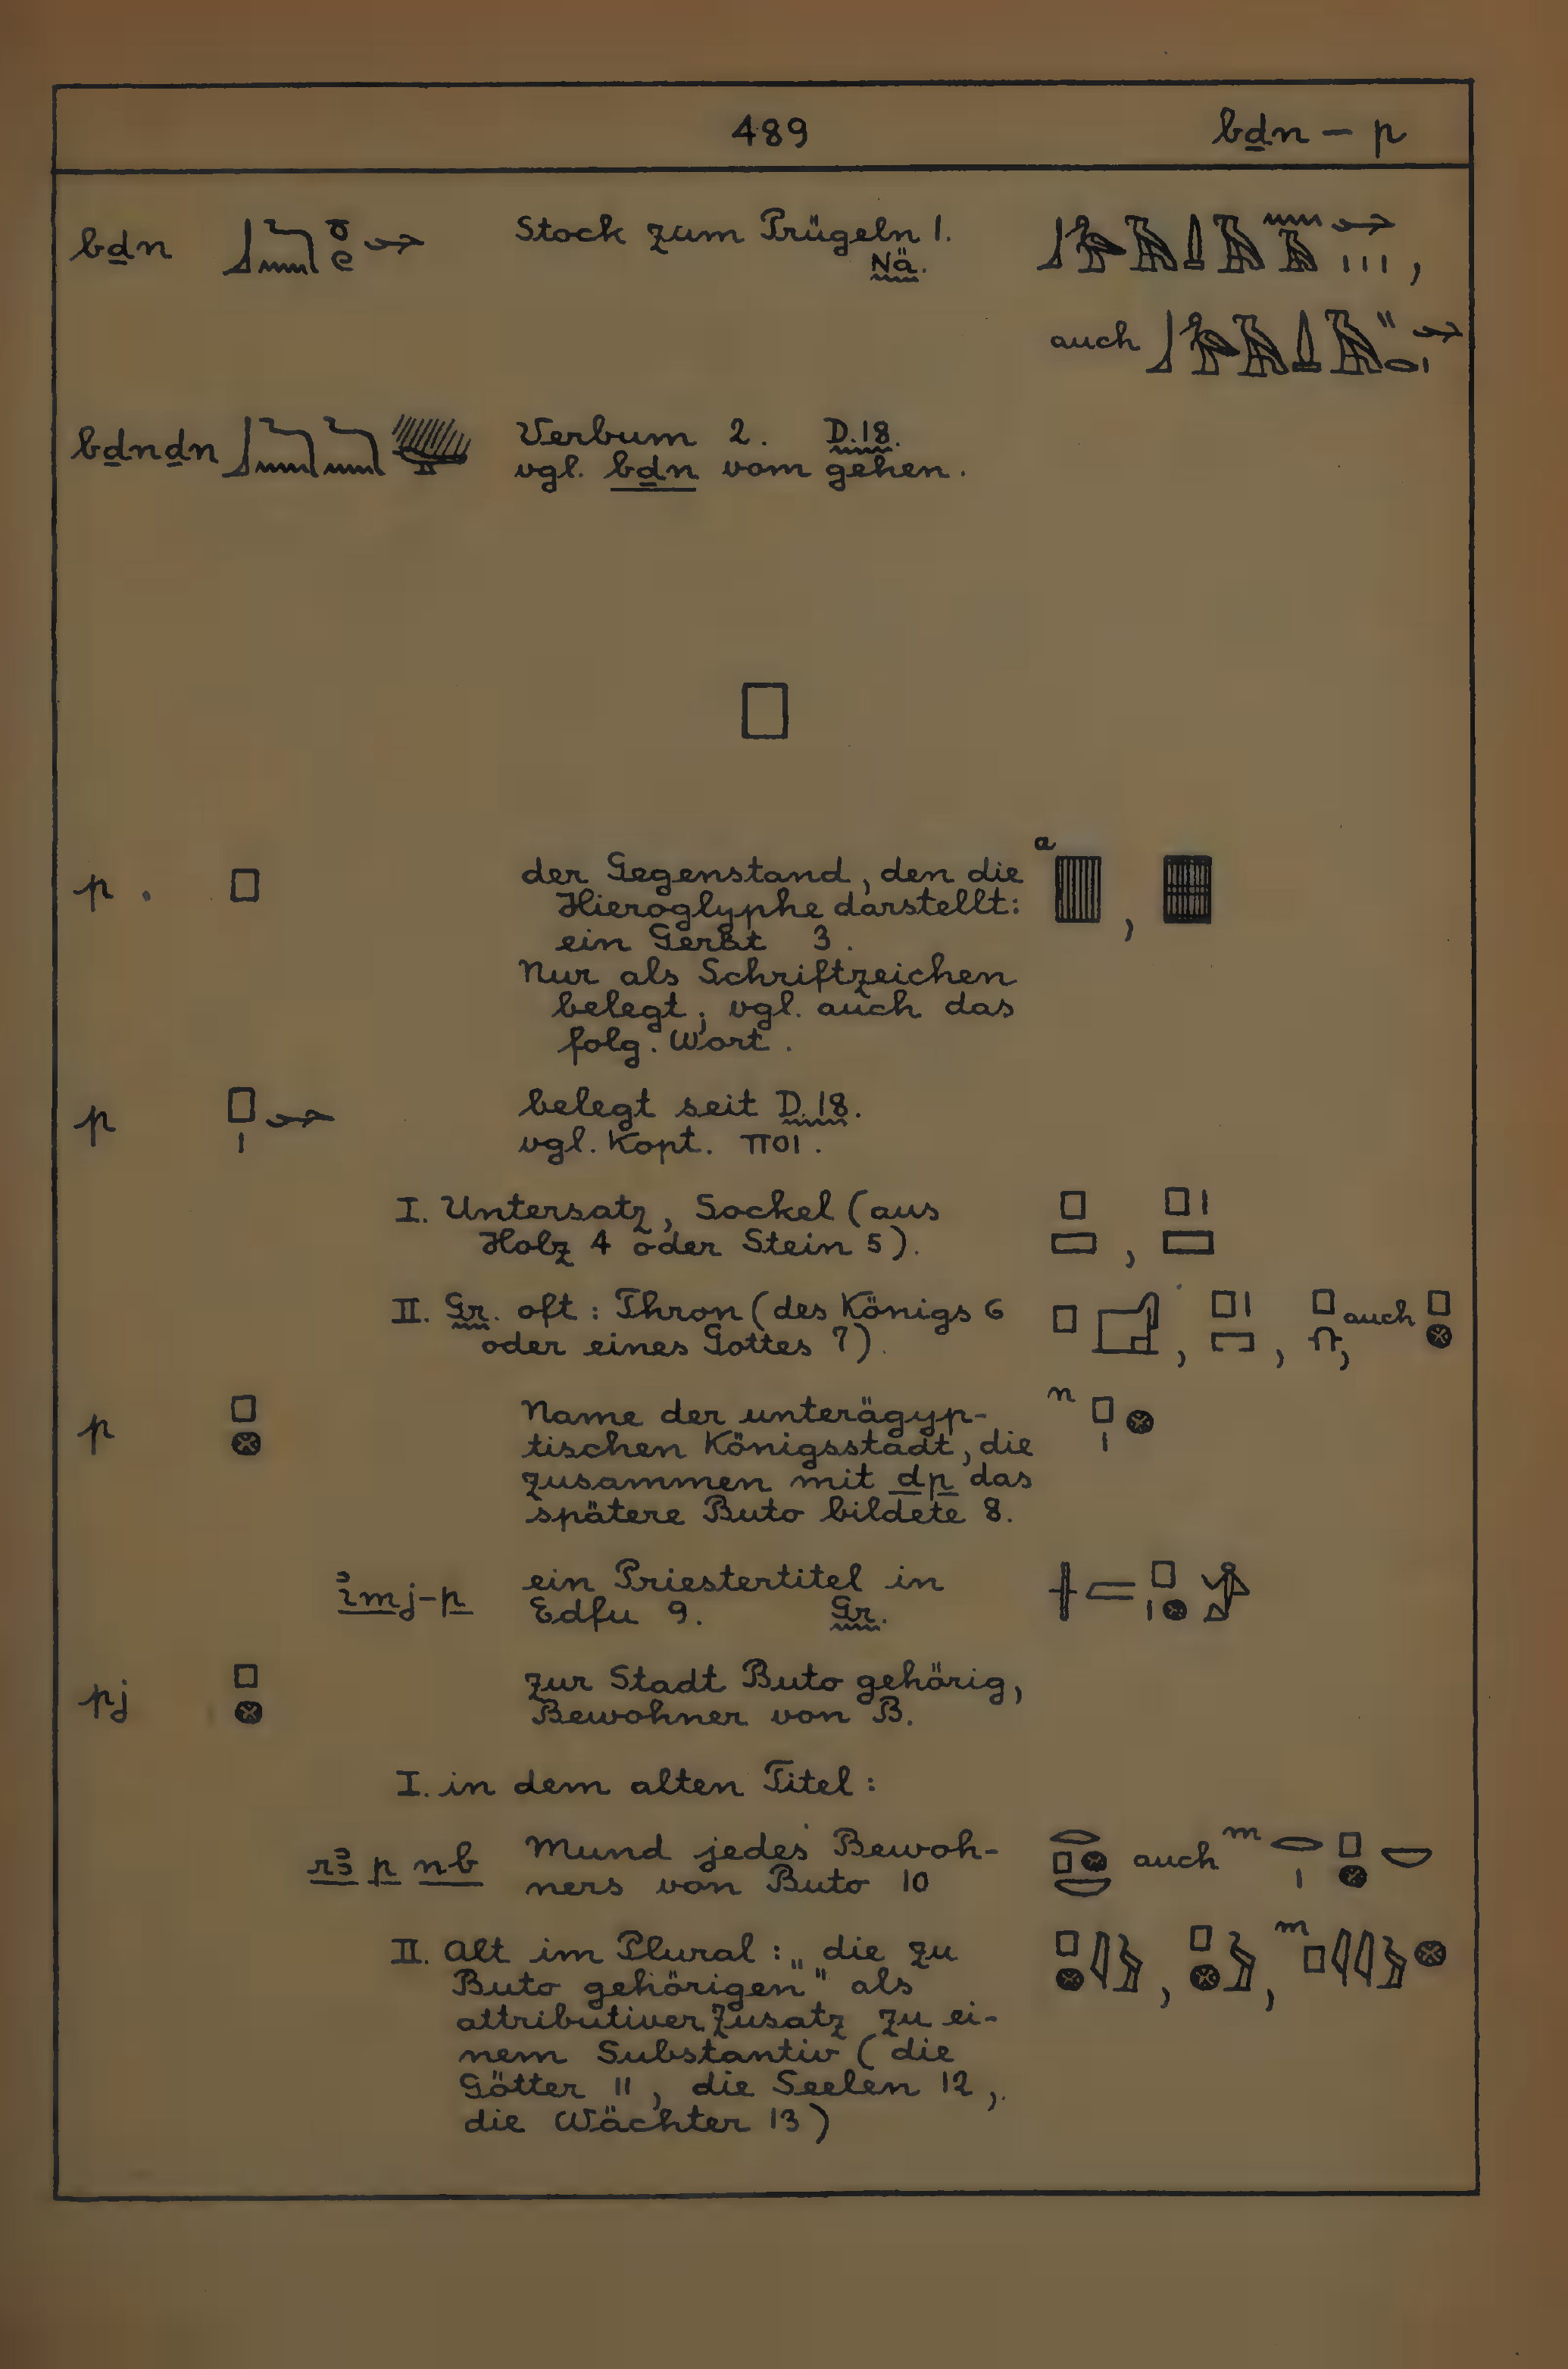 489 bḏn — p
bḏn Stock zum Prügeln 1.
Nä. ,
auch
bḏnḏn Verbum 2. D.18.
vgl. bḏn vom gehen.
p . der Gegenstand, den die a ,
Hieroglyphe darstellt:
ein Gerät 3.
Nur als Schriftzeichen
belegt; vgl. auch das
folg. Wort.
p belegt seit D.18.
vgl. Kopt. ⲡⲟⲓ.
I. Untersatz, Sockel (aus
Holz 4 oder Stein 5). ,
II. Gr. oft: Thron (des Königs 6 auch
oder eines Gottes 7). , , ,
p Name der unterägyp- n
tischen Königsstadt, die
zusammen mit dp das
spätere Buto bildete 8.
ỉmj-p ein Priestertitel in
Edfu 9. Gr.
pj zur Stadt Buto gehörig,
Bewohner von B.
I. in dem alten Titel:
rꜣ p nb Mund jedes Bewoh- auch m
ners von Buto 10
II. Alt im Plural: „die zu , , m
Buto gehörigen" als
attributiver Zusatz zu ei-
nem Substantiv (die
Götter 11, die Seelen 12,
die Wächter 13)